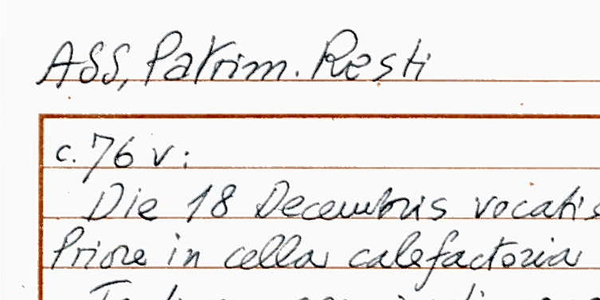 ASS, Patrim. Resti
c. 76 v:
Die 18 Decembris vocatis
Priore in cella calefactoria